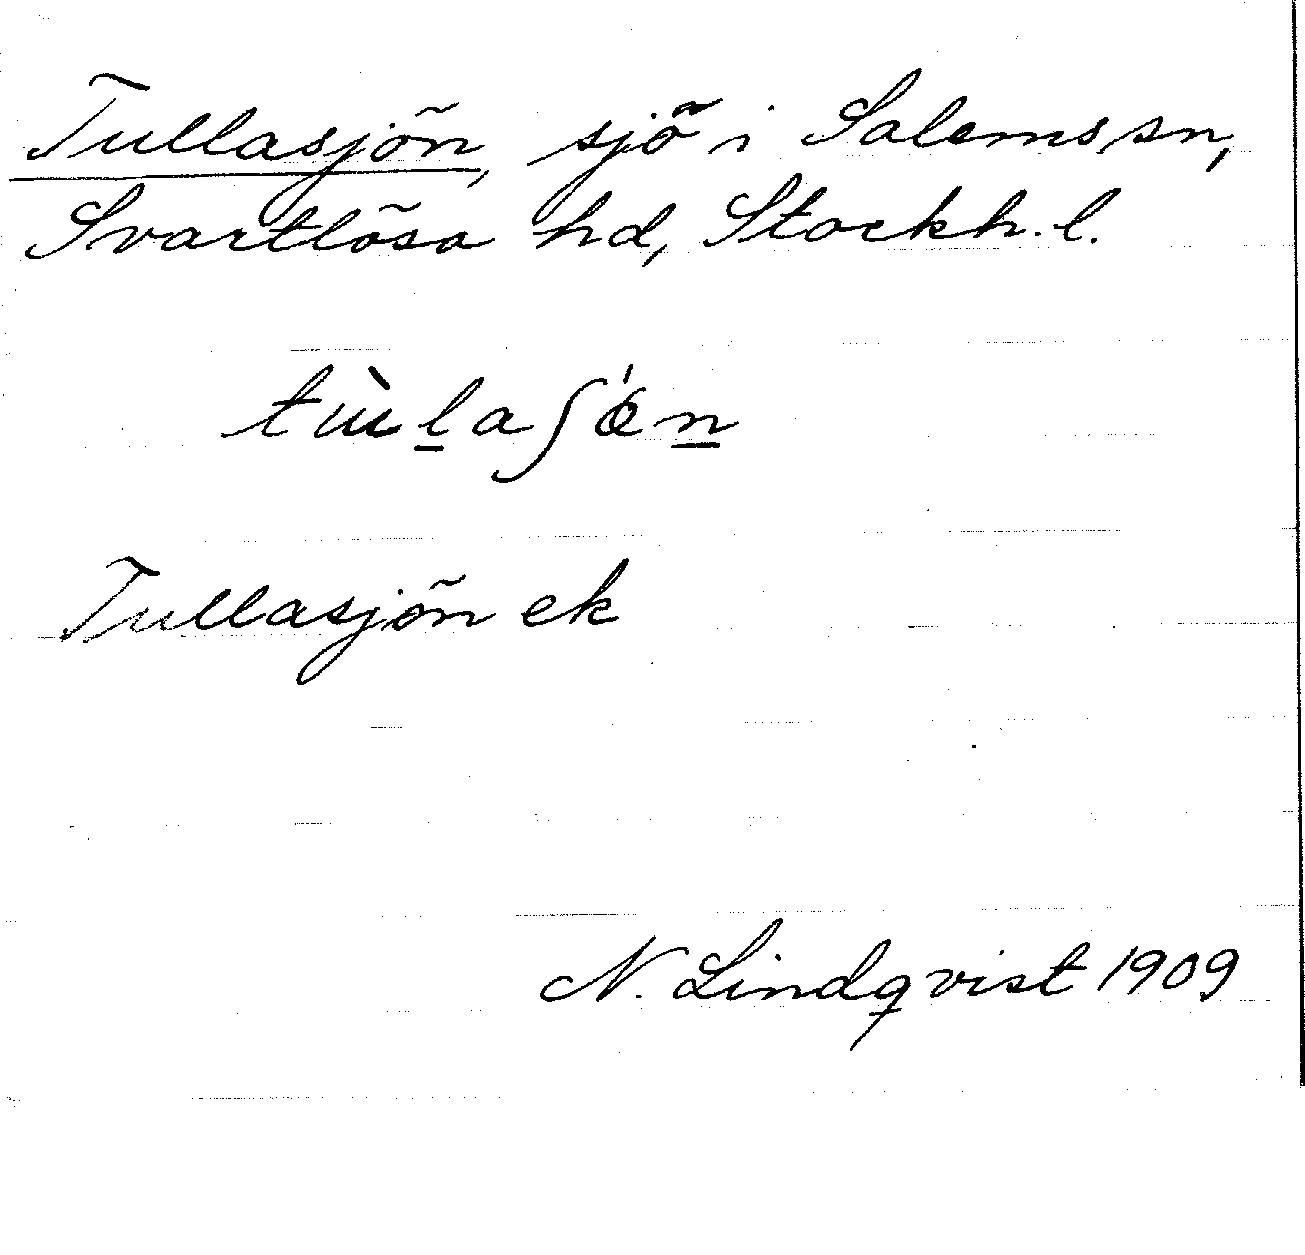 Tullasjön, sjö i Salems sn,
Svartlösa hd, Stockh. l.
Tullasjön ek
N. Lindqvist 1909